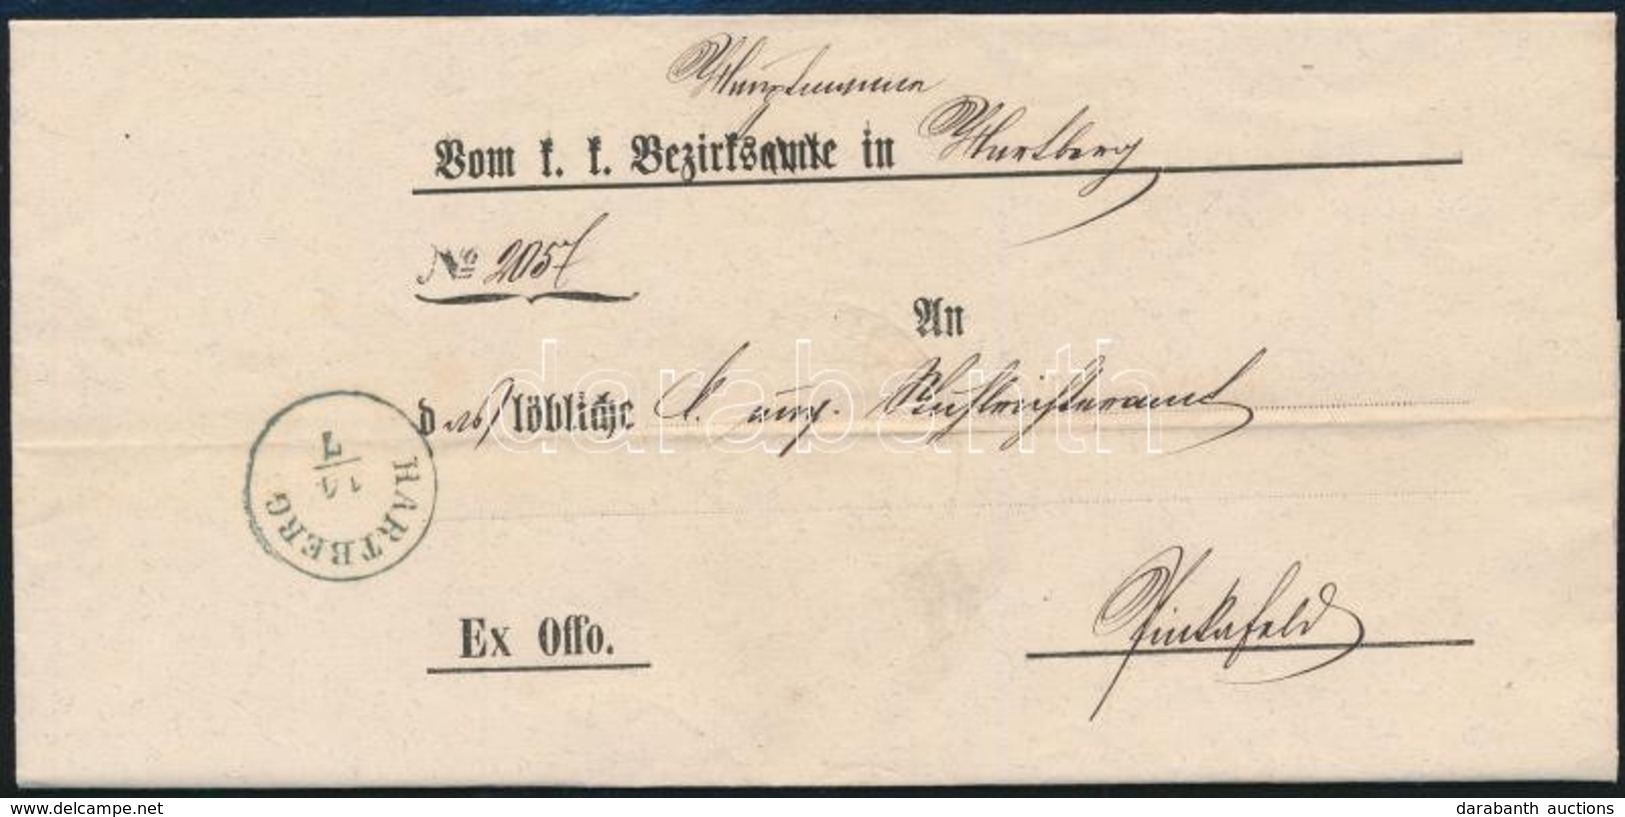 Hauptmanne
Vom k. k. Bezirksamte in Hartberg
No 2057
An
das löbliche k. ung.
HARTBERG
11/7
Ex Offo.
Pinkafeld
darabanth
www.delcampe.net
darabanth auctions